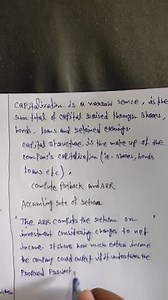 capitalization is a narrow sence, is the
sum total of capital raised through shares,
bonds, loans and retained earnings
capital structure is the make up of the
company's capitalization (ie - shares, bonds
loans etc),
compute payback and ARR
Accounting rate of return
The ARR computes the return on
investment considering changes to net
income. It shows how much extra income
the company could if it undertakes the
proposed project.